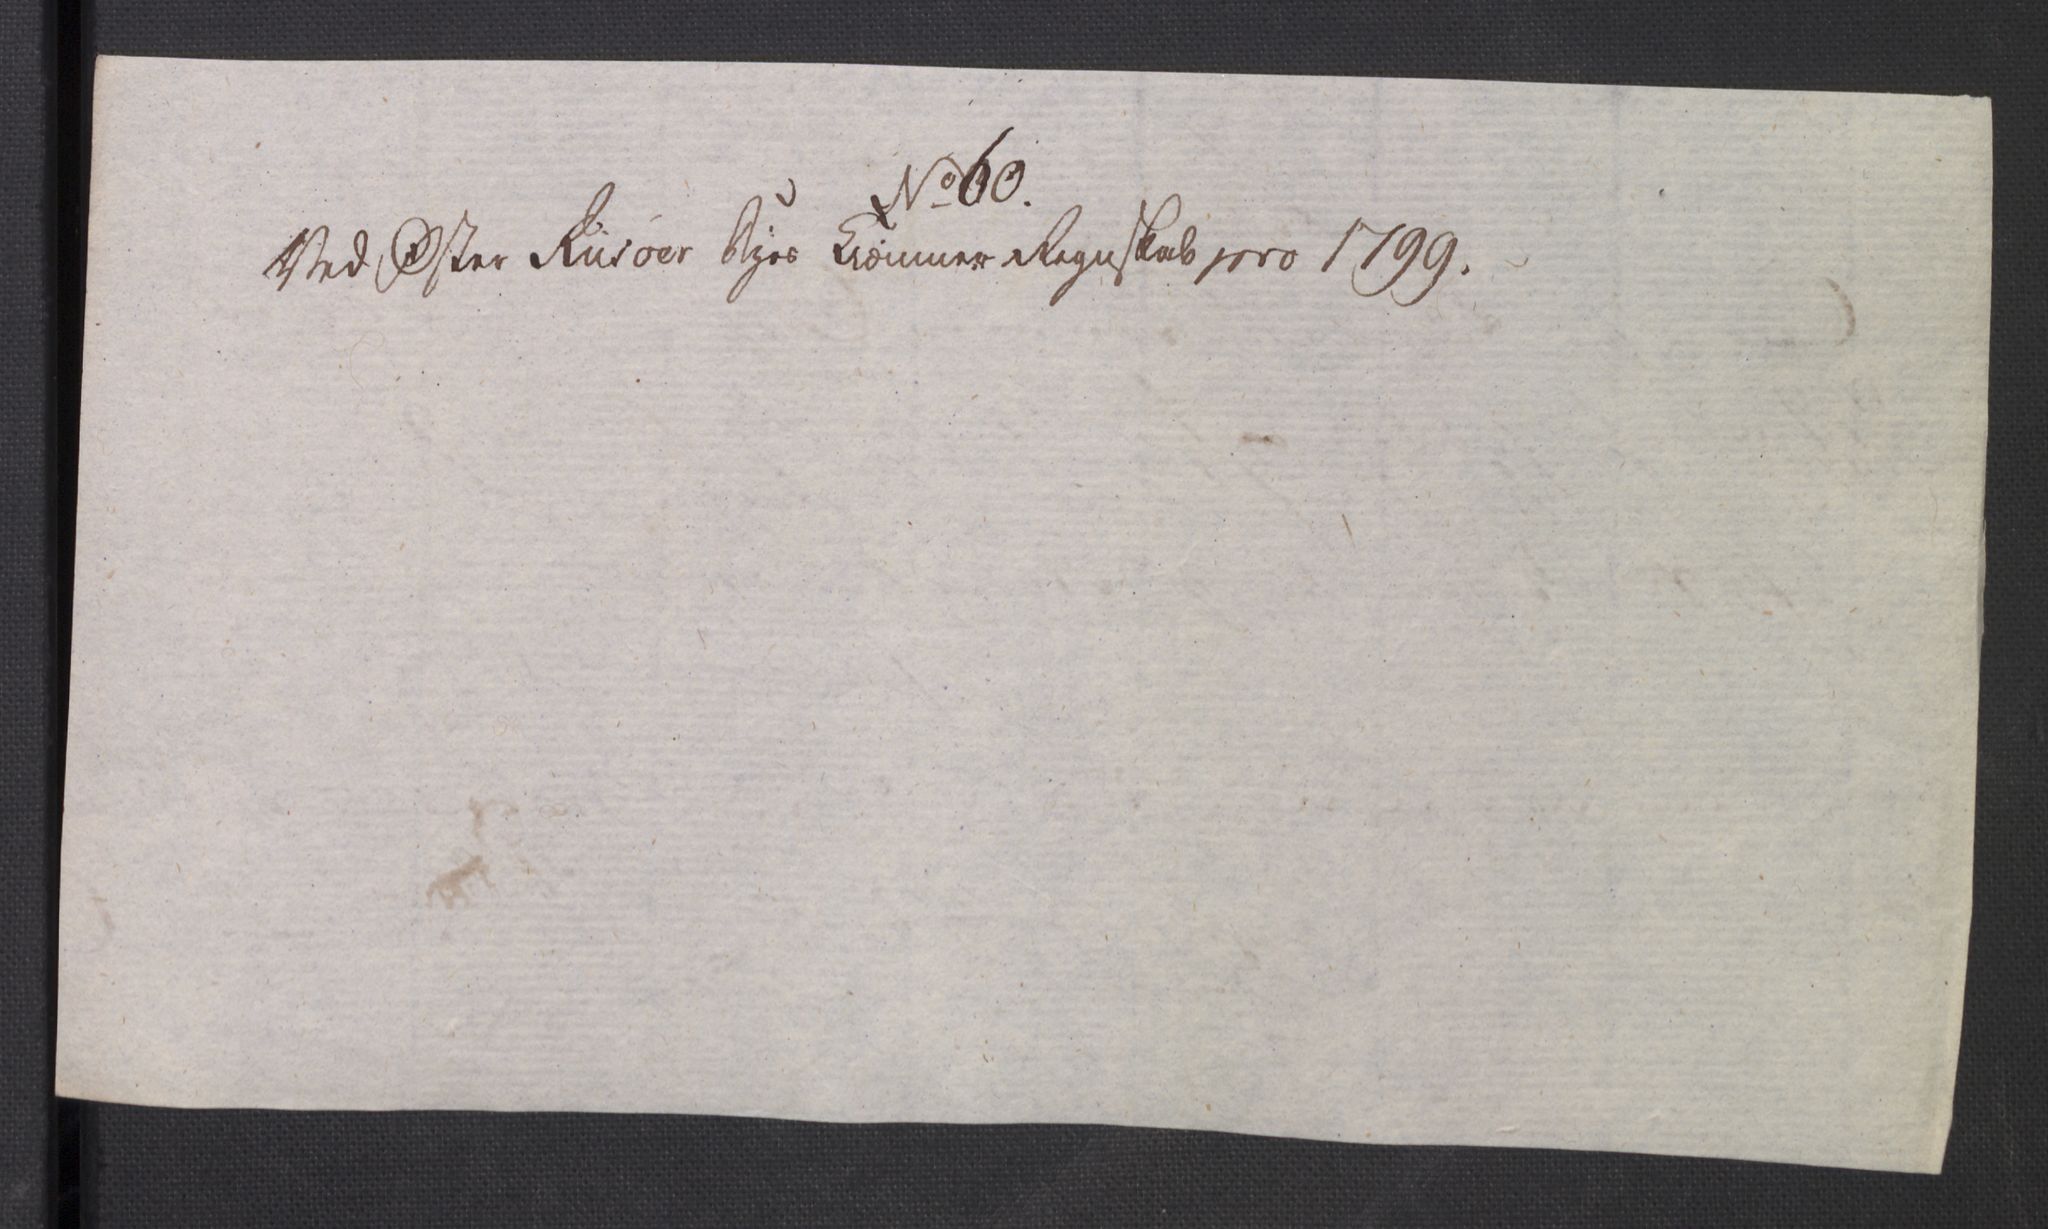 No 60.
Ved Øster Riisøer Byes Kæmner Regnskab pro 1799.